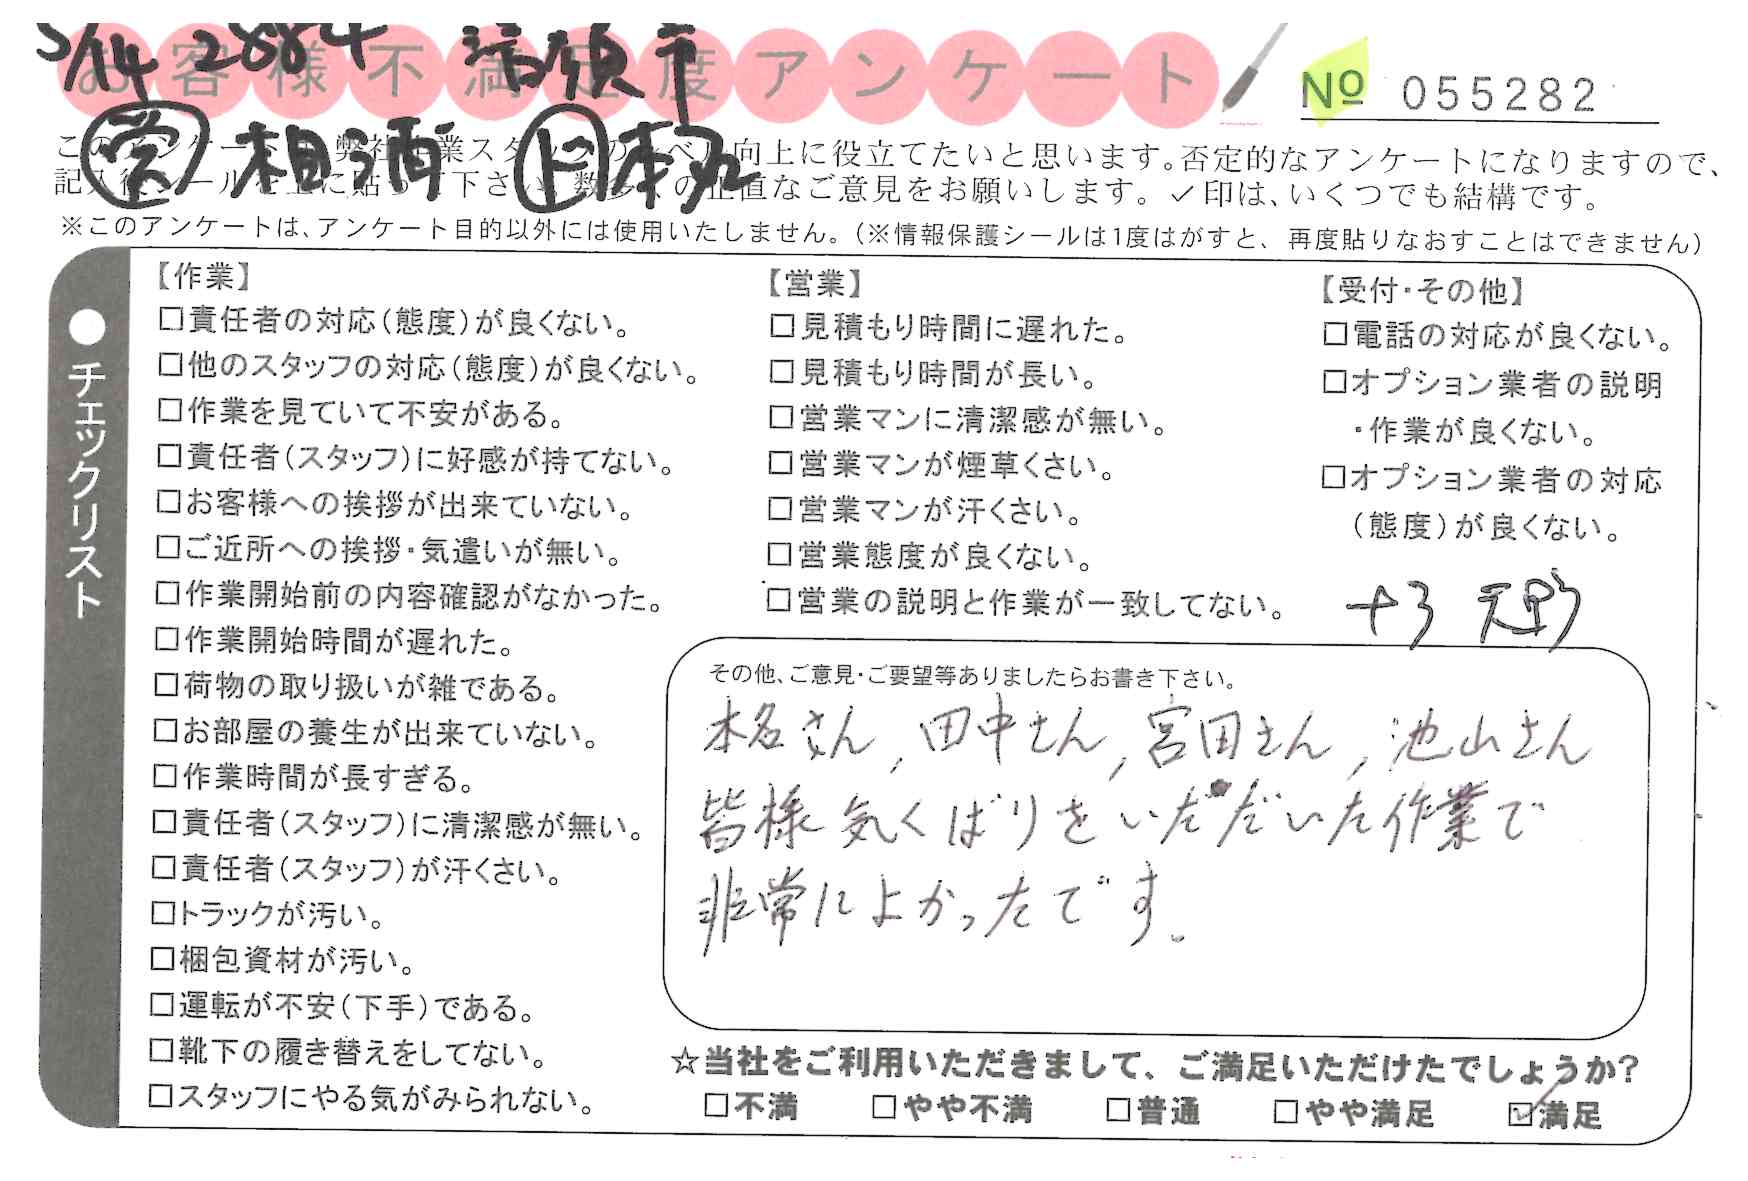 5/14 2884 清須市
お客様不満足度アンケート
№ 055282
営 相浦 ド 本丸
このアンケートは、弊社作業スタッフのレベル向上に役立てたいと思います。否定的なアンケートになりますので、
記入後シールを上に貼って下さい。数多くの正直なご意見をお願いします。✓印は、いくつでも結構です。
※このアンケートは、アンケート目的以外には使用いたしません。(※情報保護シールは1度はがすと、再度貼りなおすことはできません)
●チェックリスト
【作業】
□責任者の対応(態度)が良くない。
□他のスタッフの対応(態度)が良くない。
□作業を見ていて不安がある。
□責任者(スタッフ)に好感が持てない。
□お客様への挨拶が出来ていない。
□ご近所への挨拶・気遣いが無い。
□作業開始前の内容確認がなかった。
□作業開始時間が遅れた。
□荷物の取り扱いが雑である。
□お部屋の養生が出来ていない。
□作業時間が長すぎる。
□責任者(スタッフ)に清潔感が無い。
□責任者(スタッフ)が汗くさい。
□トラックが汚い。
□梱包資材が汚い。
□運転が不安(下手)である。
□靴下の履き替えをしてない。
□スタッフにやる気がみられない。
【営業】
□見積もり時間に遅れた。
□見積もり時間が長い。
□営業マンに清潔感が無い。
□営業マンが煙草くさい。
□営業マンが汗くさい。
□営業態度が良くない。
□営業の説明と作業が一致してない。
【受付・その他】
□電話の対応が良くない。
□オプション業者の説明
・作業が良くない。
□オプション業者の対応
(態度)が良くない。
+3
その他、ご意見・ご要望等ありましたらお書き下さい。
本名さん,田中さん,宮田さん,池山さん
皆様気くばりをいただいた作業で
非常によかったです。
☆当社をご利用いただきまして、ご満足いただけたでしょうか?
□不満 □やや不満 □普通 □やや満足 ☑満足